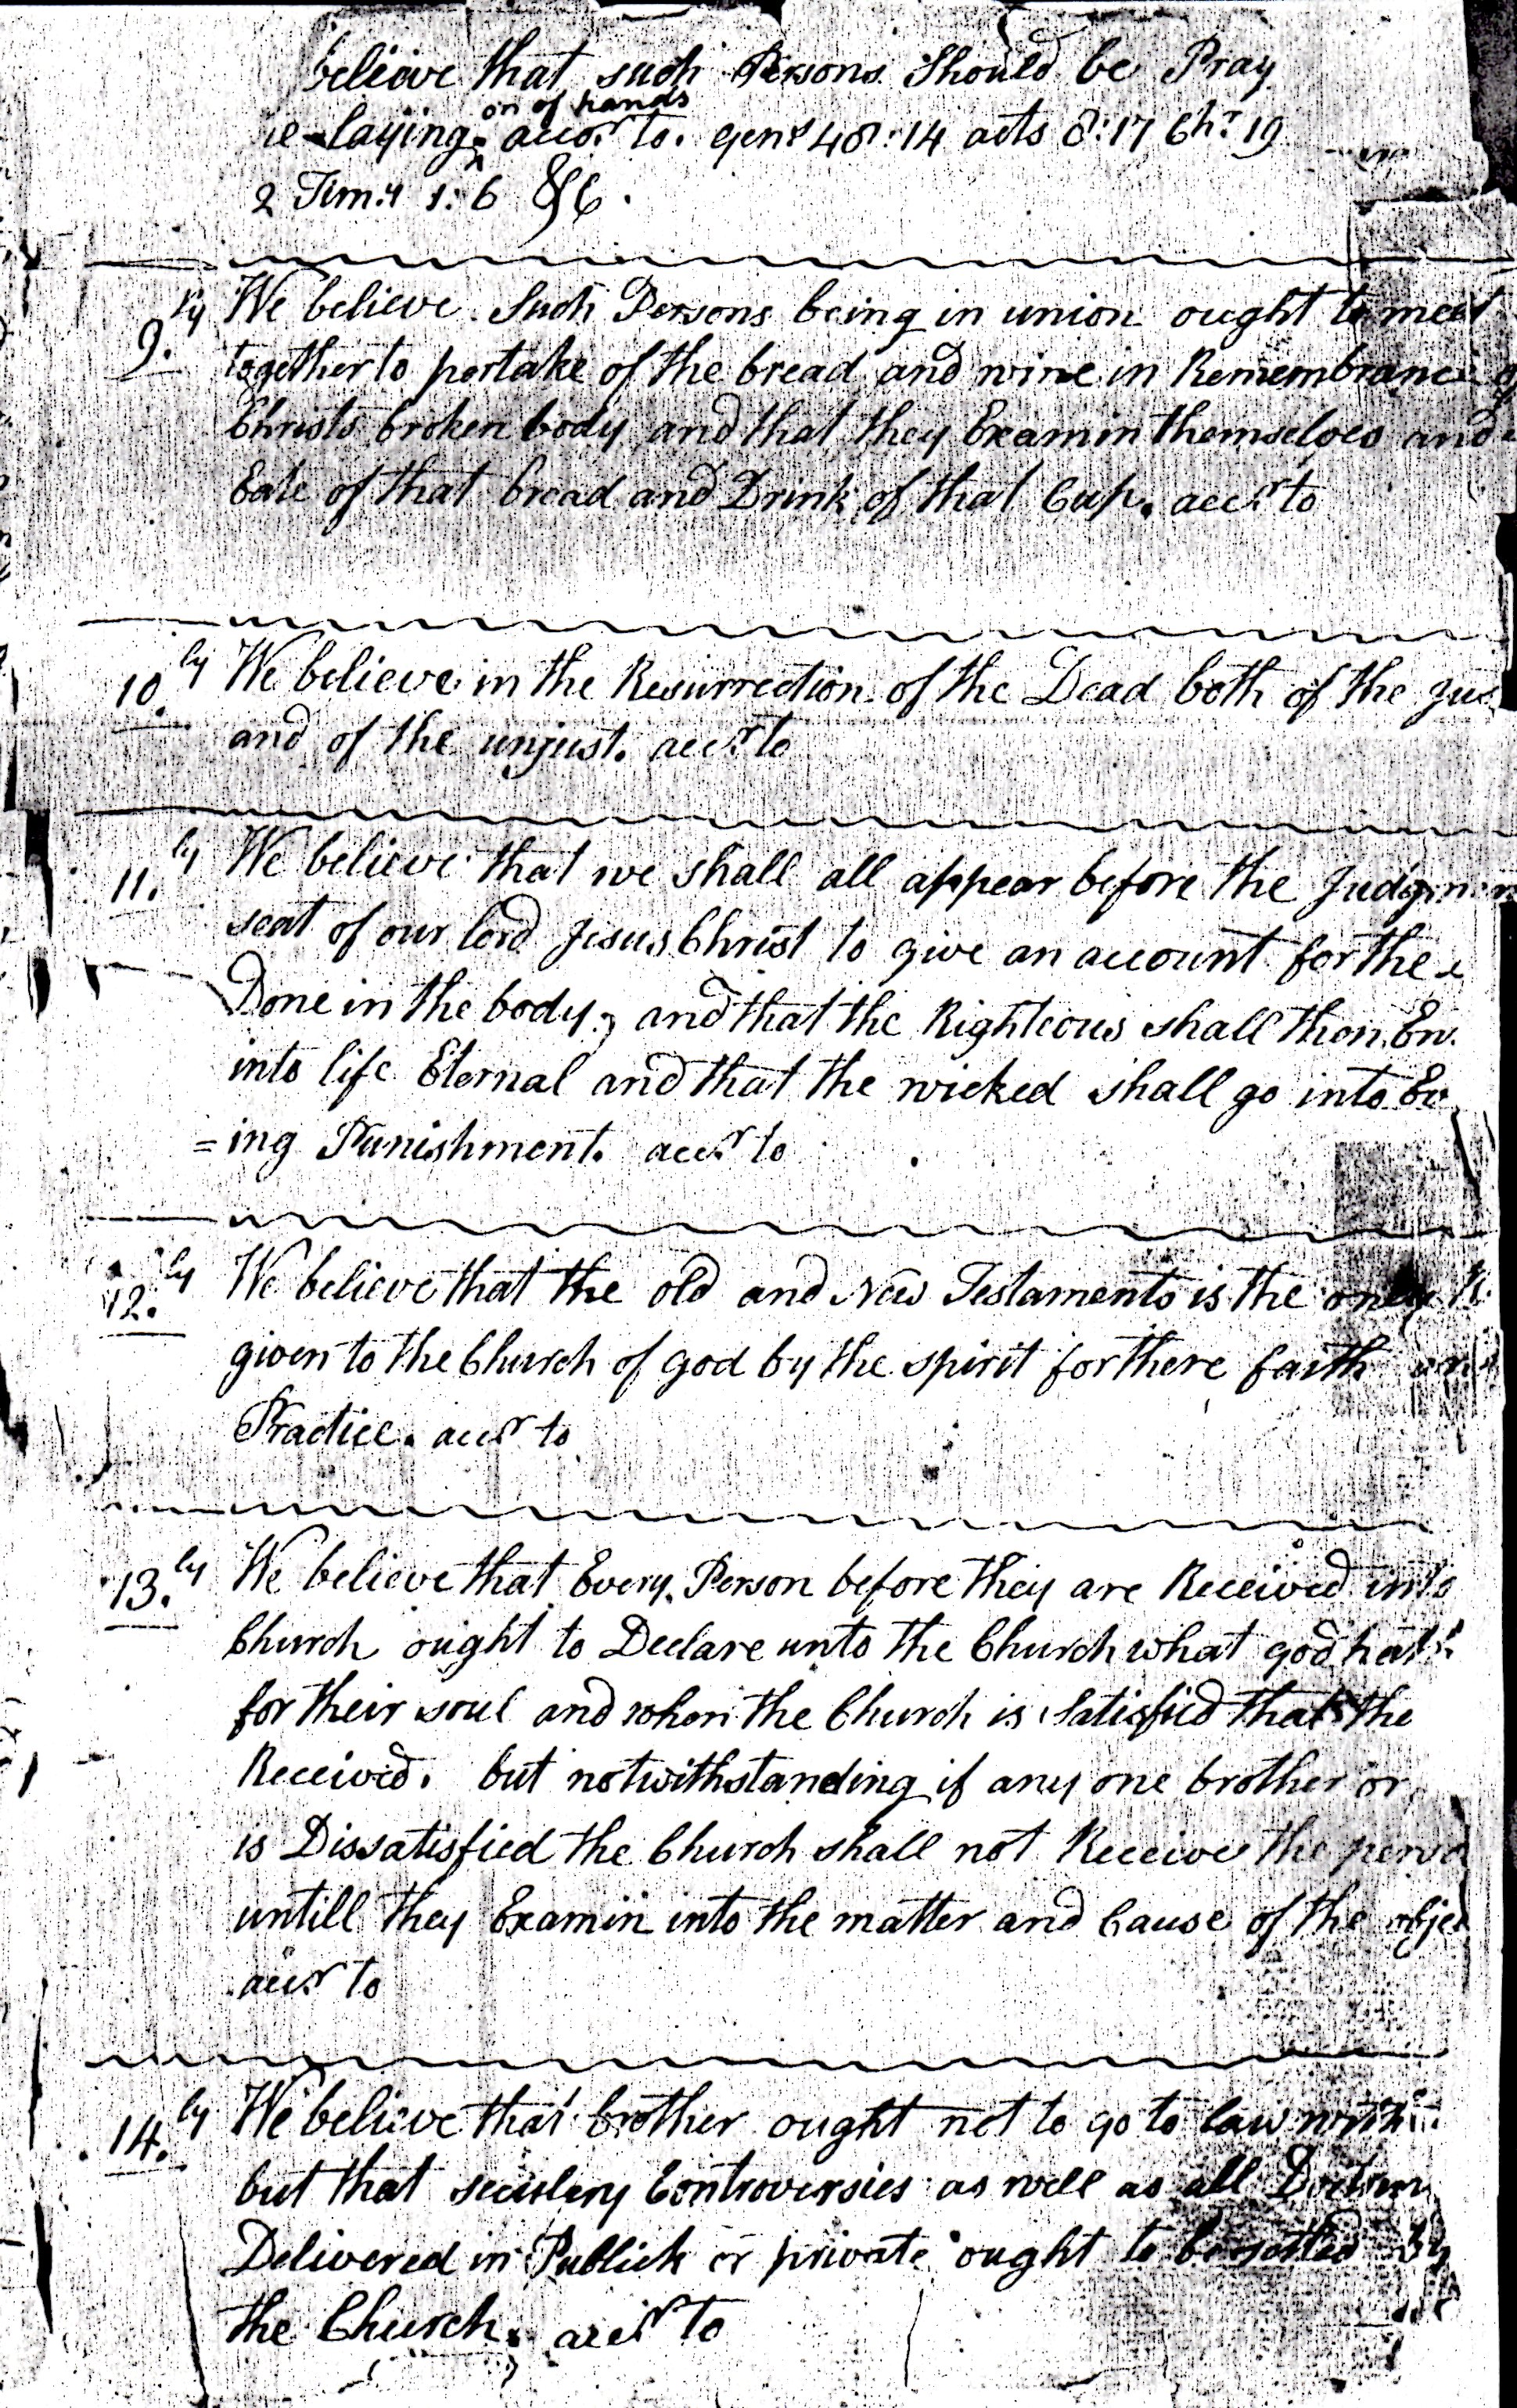 believe that such Persons Should be Pray
on of hands
laying accor to. gens 48:14 acts 8:17 Chr 19
2 Tim:y 1:6 &c.
9.ly We believe Such Persons being in union ought to meet
together to partake of the bread and wine in Remembrance
Christs broken body and that they Examin themselves and
Eate of that bread and Drink of that Cup. accr to
10.ly We believe in the Resurrection of the Dead both of the
and of the unjust. accr to
11.ly We believe that we shall all appear before the
seat of our lord Jesus Christ to give an account for the
Done in the body; and that the Righteous shall then En
into life Eternal and that the wicked shall go into Ev
=ing Punishment. accr to
12.ly We believe that the old and New Testaments is the only
given to the Church of god by the spirit for there faith
Practice. accr to
13.ly We believe that Every Person before they are Received into
Church ought to Declare unto the Church what god hath
for their soul and when the Church is Satisfied that the
Received. but notwithstanding if any one brother or
is Dissatisfied the Church shall not Receive the perso
untill they Examin into the matter and Cause of the objec
accr to
14.ly We believe that brother ought not to go to law with
but that seculery Controversies as well as all Doctrin
Delivered in Publick or private ought to be settled by
the Church. accr to